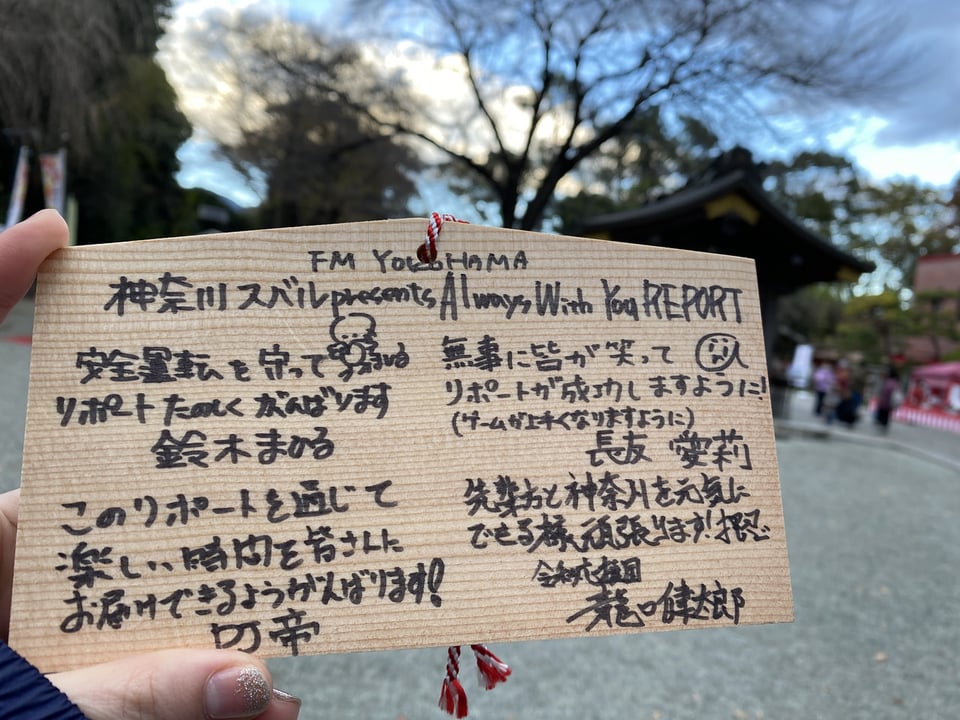 FM YOKOHAMA
神奈川スバル presents Always With You REPORT
安全運転を守って
リポートたのしくがんばります
鈴木まひる
無事に皆が笑って
リポートが成功しますように!
(ゲームが上手くなりますように)
長友 愛莉
このリポートを通じて
楽しい時間を皆さんに
お届けできるようがんばります!
DJ帝
先輩方と神奈川を元気に
できる様頑張ります!押忍
令和応援団
龍口健太郎